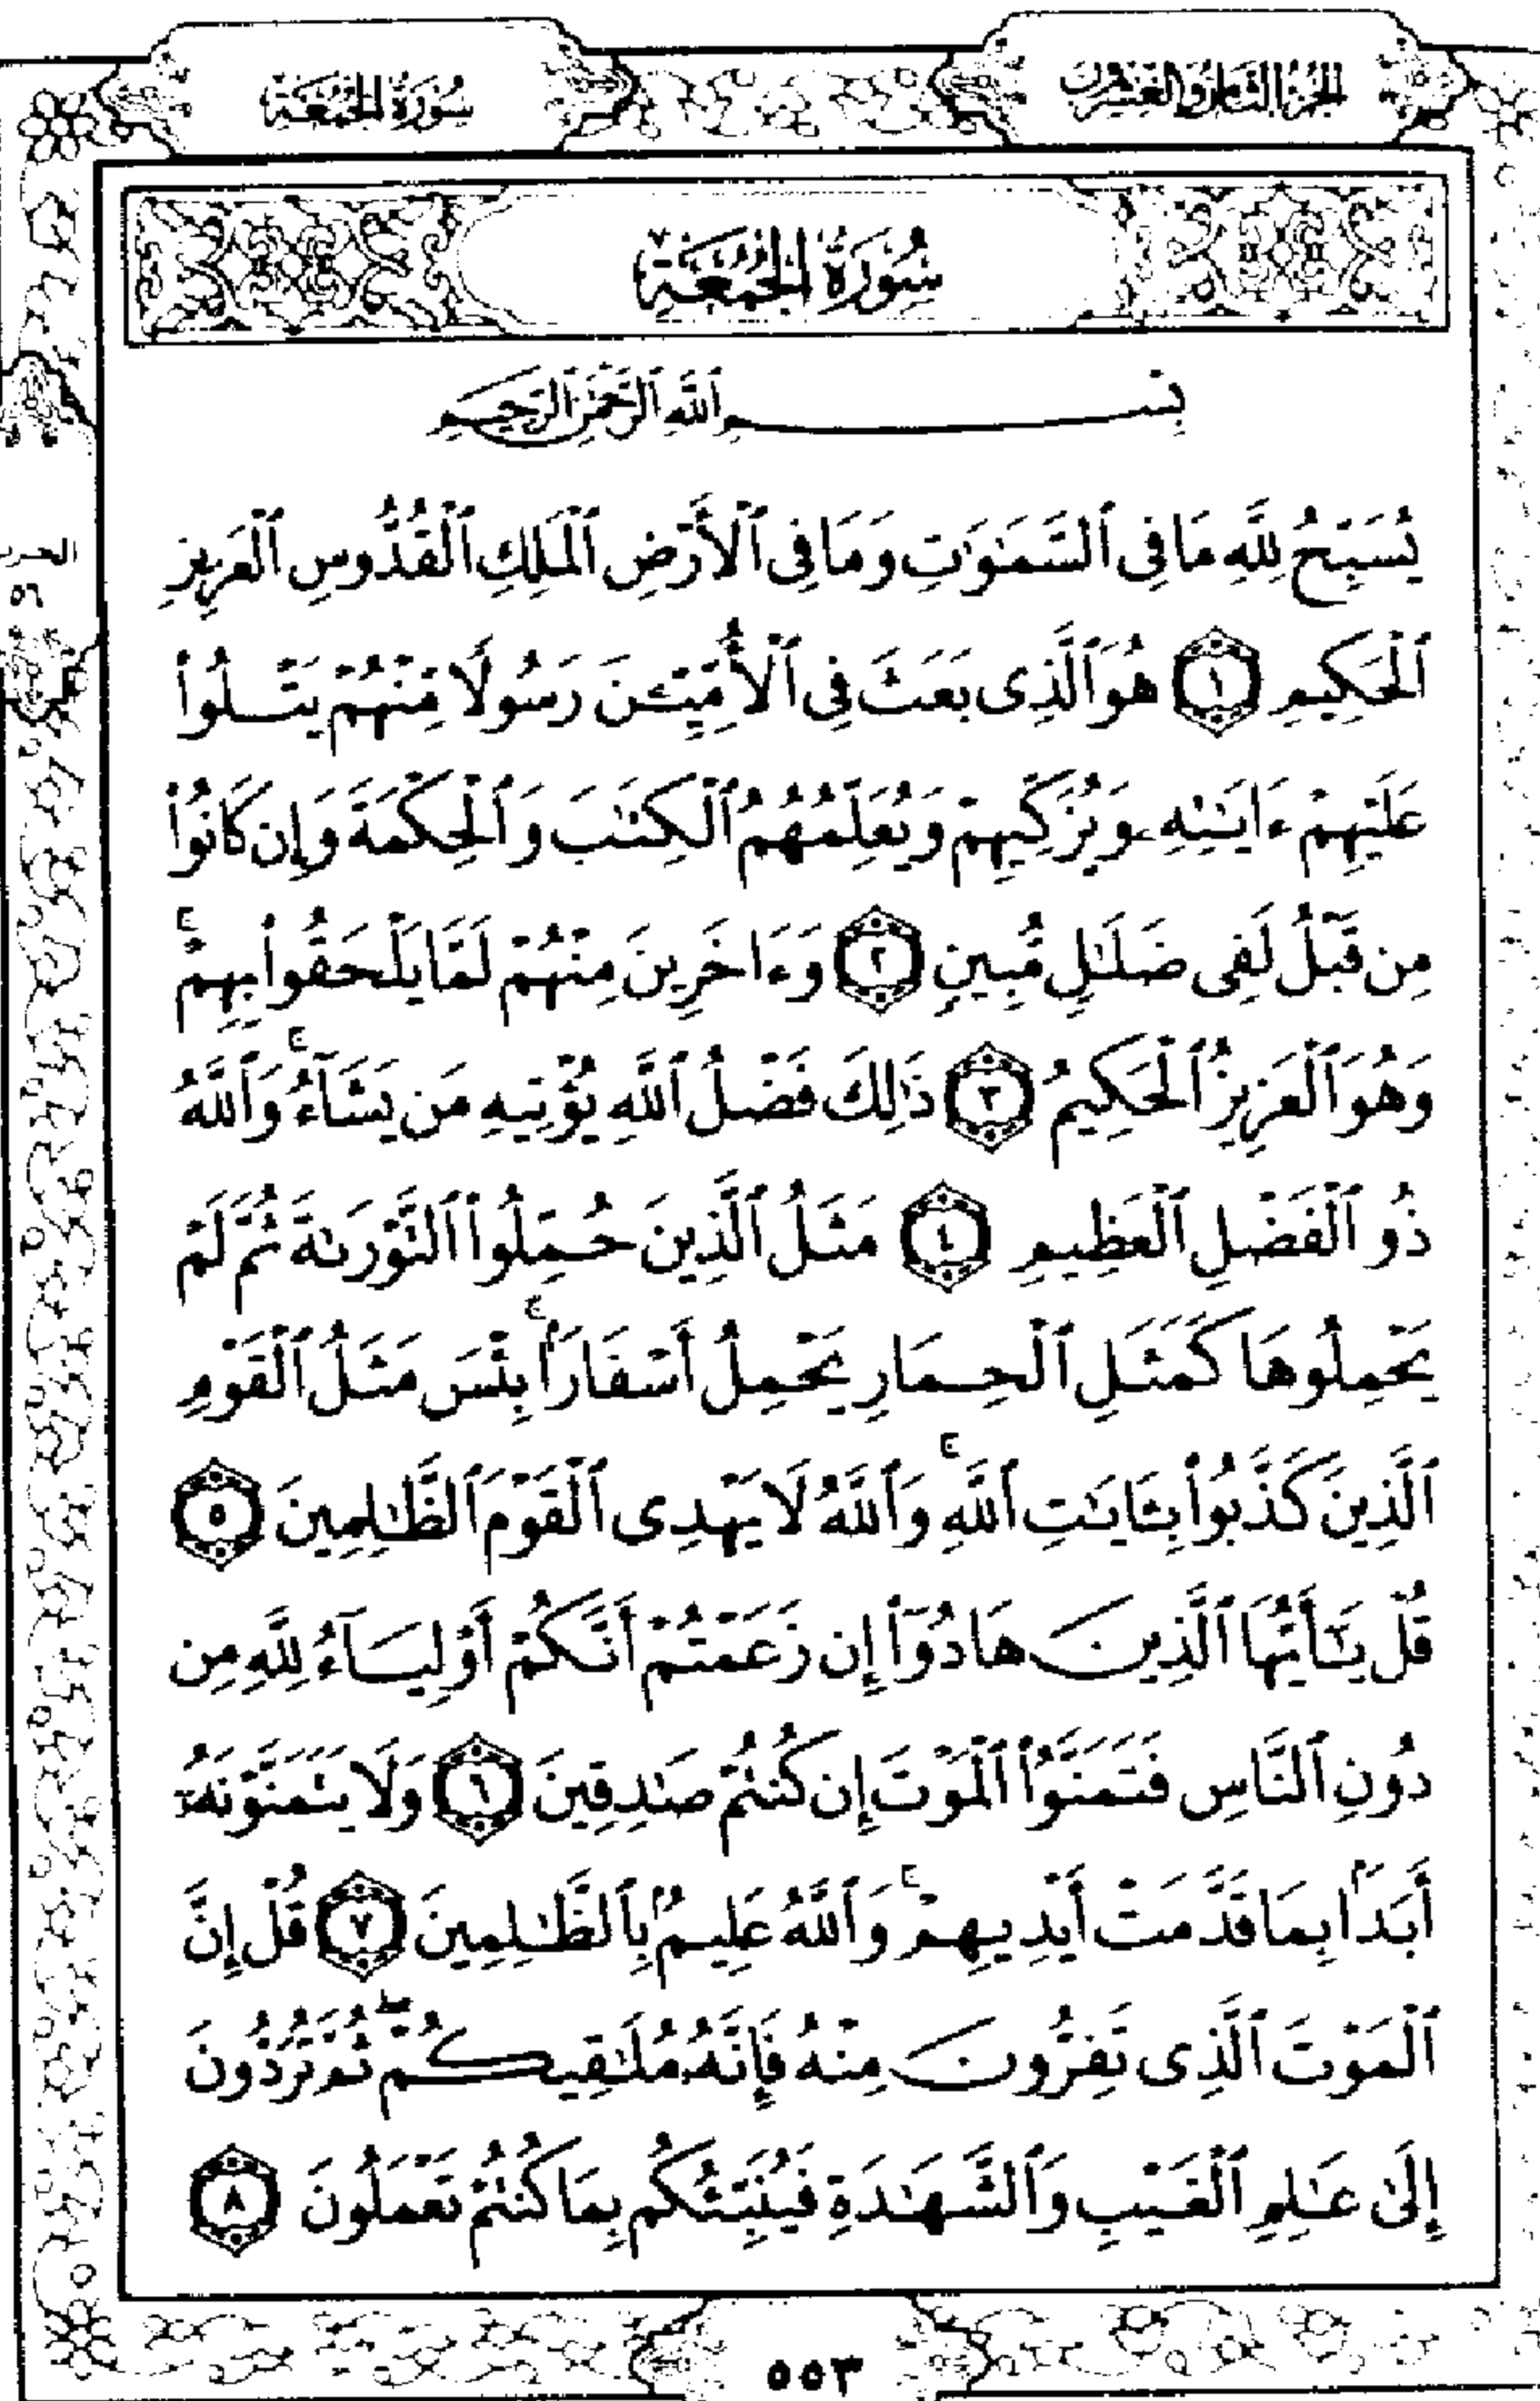 الجزء الثامن والعشرون
سورة الجمعة
سُورَةُ الْجُمُعَةِ
بِسْمِ ٱللَّهِ ٱلرَّحْمَٰنِ ٱلرَّحِيمِ
يُسَبِّحُ لِلَّهِ مَا فِى ٱلسَّمَٰوَٰتِ وَمَا فِى ٱلْأَرْضِ ٱلْمَلِكِ ٱلْقُدُّوسِ ٱلْعَزِيزِ
ٱلْحَكِيمِ ١ هُوَ ٱلَّذِى بَعَثَ فِى ٱلْأُمِّيِّـۧنَ رَسُولًا مِّنْهُمْ يَتْلُوا۟
عَلَيْهِمْ ءَايَٰتِهِۦ وَيُزَكِّيهِمْ وَيُعَلِّمُهُمُ ٱلْكِتَٰبَ وَٱلْحِكْمَةَ وَإِن كَانُوا۟
مِن قَبْلُ لَفِى ضَلَٰلٍ مُّبِينٍ ٢ وَءَاخَرِينَ مِنْهُمْ لَمَّا يَلْحَقُوا۟ بِهِمْ ۚ
وَهُوَ ٱلْعَزِيزُ ٱلْحَكِيمُ ٣ ذَٰلِكَ فَضْلُ ٱللَّهِ يُؤْتِيهِ مَن يَشَآءُ ۚ وَٱللَّهُ
ذُو ٱلْفَضْلِ ٱلْعَظِيمِ ٤ مَثَلُ ٱلَّذِينَ حُمِّلُوا۟ ٱلتَّوْرَىٰةَ ثُمَّ لَمْ
يَحْمِلُوهَا كَمَثَلِ ٱلْحِمَارِ يَحْمِلُ أَسْفَارًۢا ۚ بِئْسَ مَثَلُ ٱلْقَوْمِ
ٱلَّذِينَ كَذَّبُوا۟ بِـَٔايَٰتِ ٱللَّهِ ۚ وَٱللَّهُ لَا يَهْدِى ٱلْقَوْمَ ٱلظَّٰلِمِينَ ٥
قُلْ يَٰٓأَيُّهَا ٱلَّذِينَ هَادُوٓا۟ إِن زَعَمْتُمْ أَنَّكُمْ أَوْلِيَآءُ لِلَّهِ مِن
دُونِ ٱلنَّاسِ فَتَمَنَّوُا۟ ٱلْمَوْتَ إِن كُنتُمْ صَٰدِقِينَ ٦ وَلَا يَتَمَنَّوْنَهُۥٓ
أَبَدًۢا بِمَا قَدَّمَتْ أَيْدِيهِمْ ۚ وَٱللَّهُ عَلِيمٌۢ بِٱلظَّٰلِمِينَ ٧ قُلْ إِنَّ
ٱلْمَوْتَ ٱلَّذِى تَفِرُّونَ مِنْهُ فَإِنَّهُۥ مُلَٰقِيكُمْ ۖ ثُمَّ تُرَدُّونَ
إِلَىٰ عَٰلِمِ ٱلْغَيْبِ وَٱلشَّهَٰدَةِ فَيُنَبِّئُكُم بِمَا كُنتُمْ تَعْمَلُونَ ٨
٥٥٣